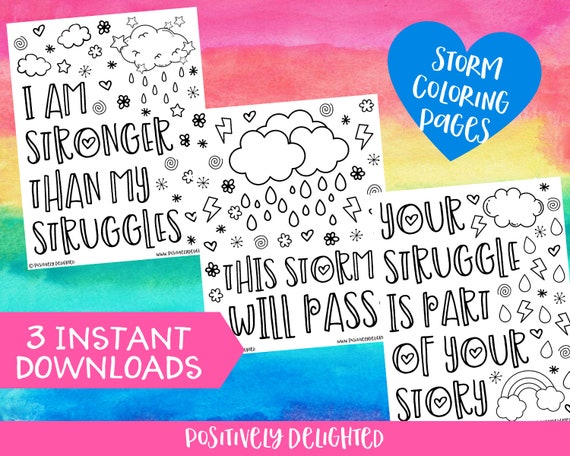 I AM
STRONGER
THAN MY
STRUGGLES
© POSITIVELY DELIGHTED
THIS STORM
WILL PASS
YOUR
STRUGGLE
IS PART
OF YOUR
STORY
STORM
COLORING
PAGES
3 INSTANT
DOWNLOADS
POSITIVELY DELIGHTED